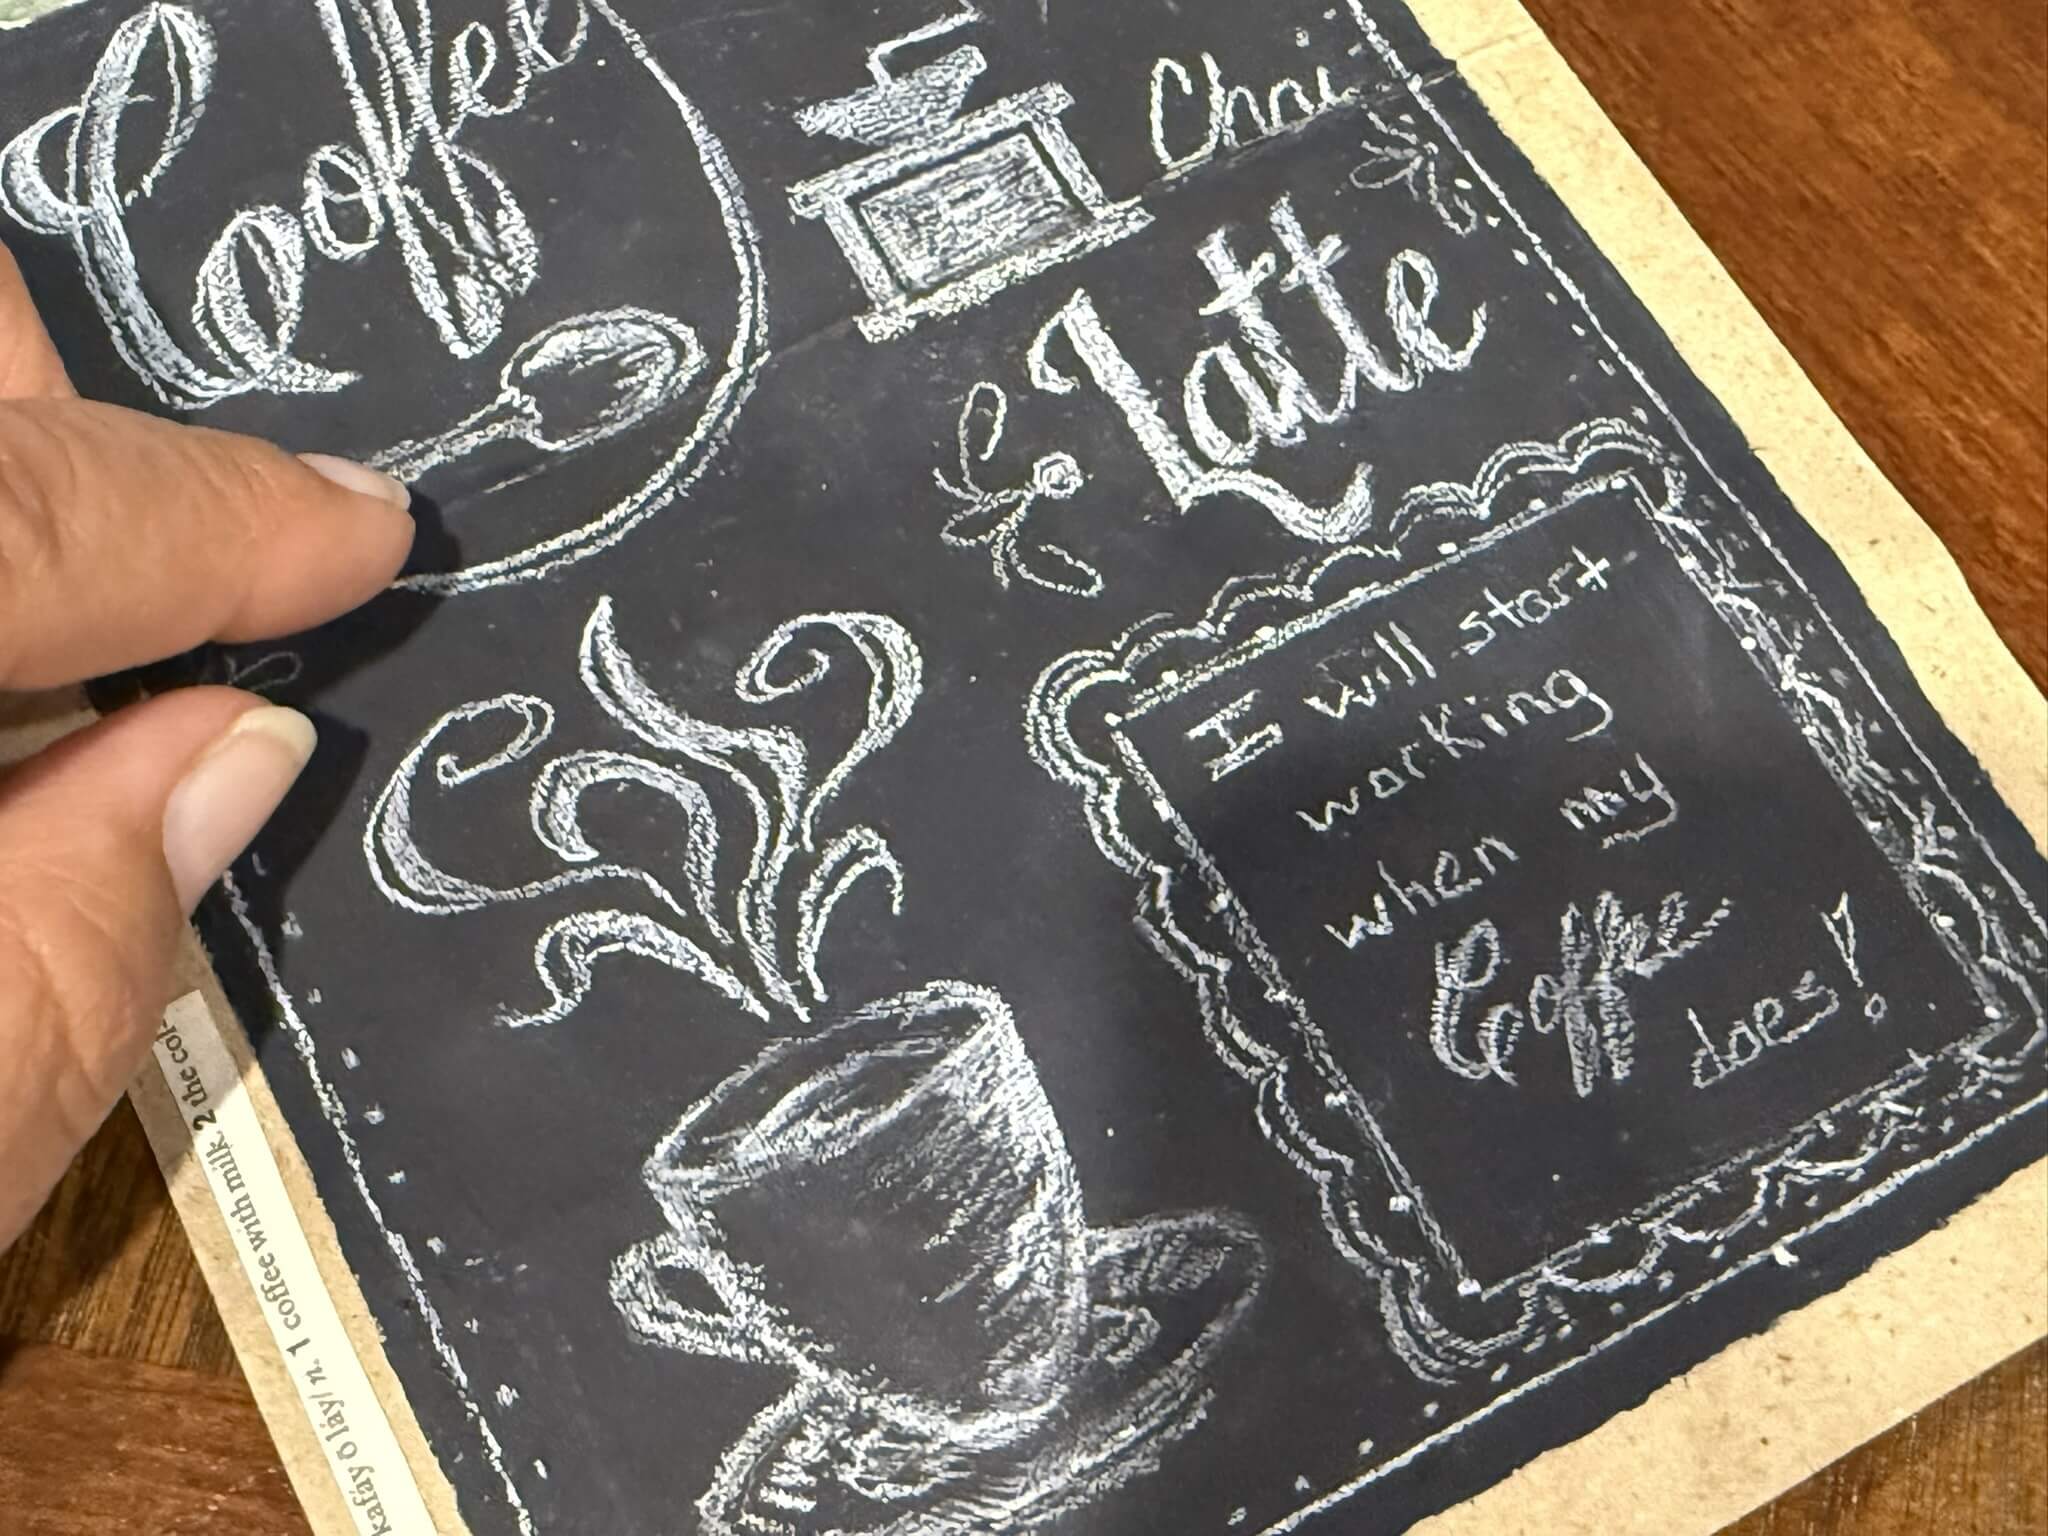 Coffee
Chai
Latte
I will start
working
when my
Coffee
does!
kafāy ō láy/ n. 1 coffee with milk. 2 the col